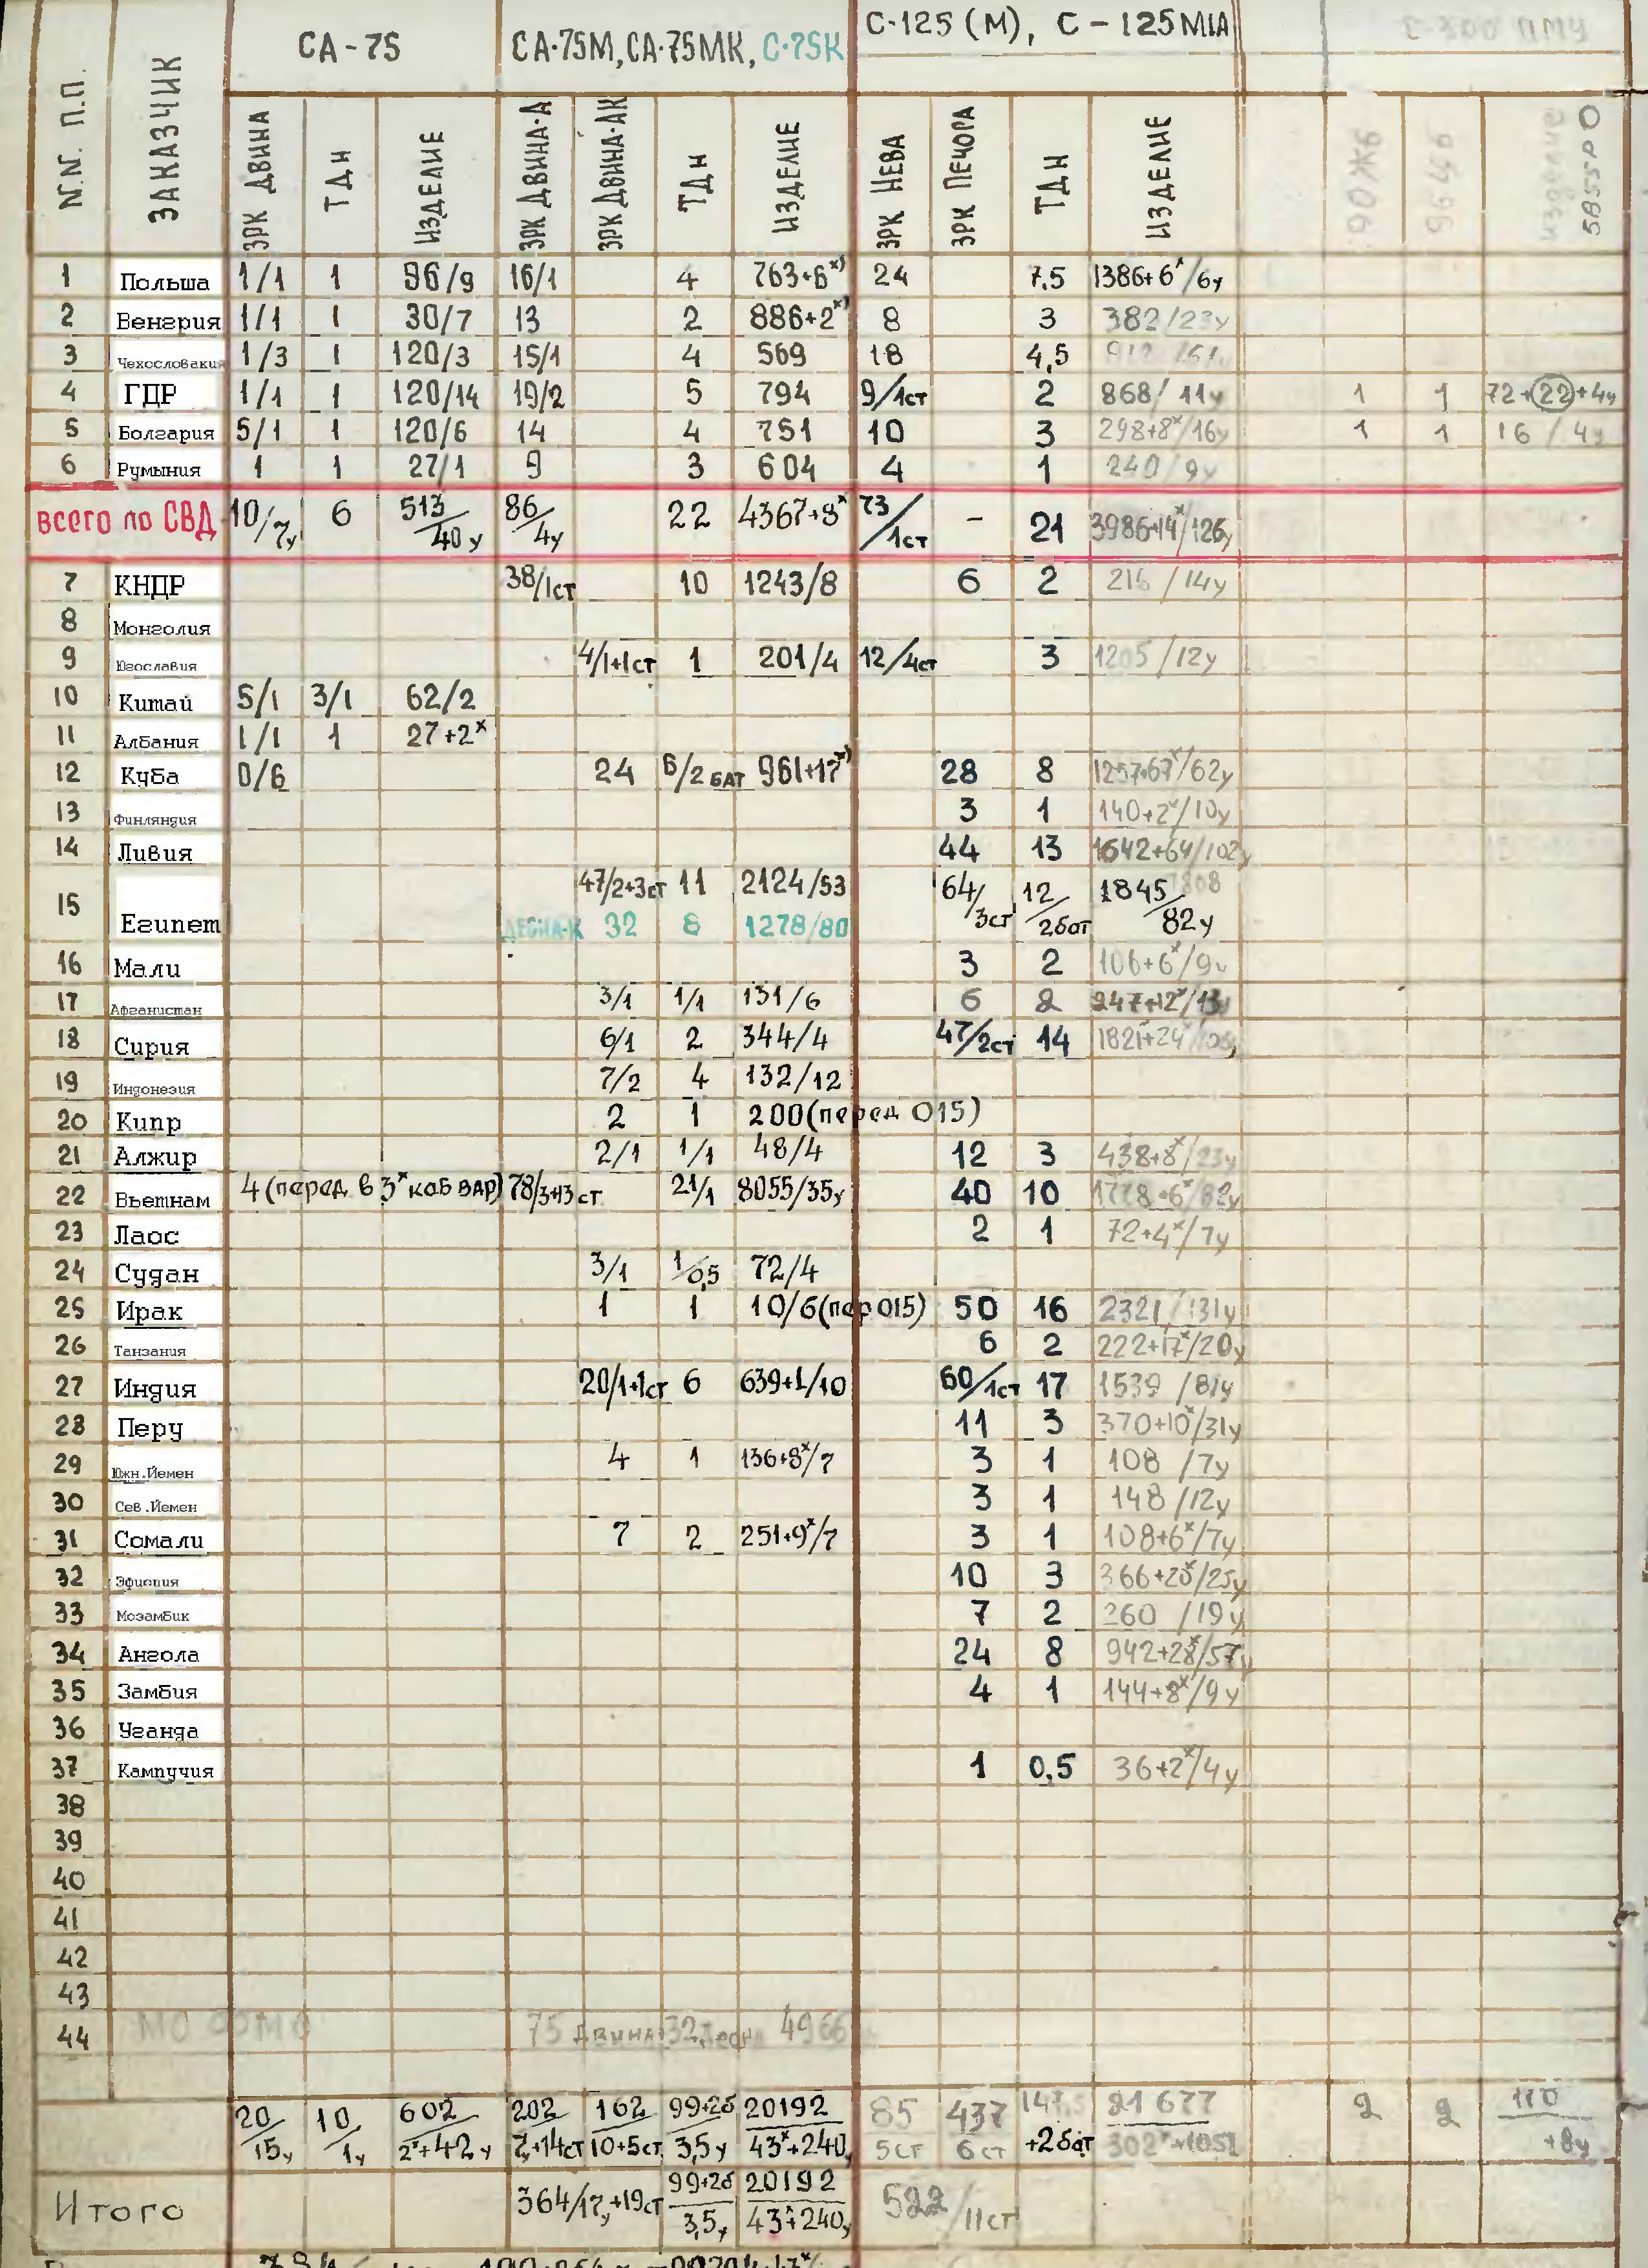 СА-75 СА·75М, СА·75МК, С·75К С·125 (М), С-125М1А С-300 ПМУ
N.N. П.П. ЗАКАЗЧИК ЗРК ДВИНА ТДН ИЗДЕЛИЕ ЗРК ДВИНА·А ЗРК ДВИНА·АК ТДН ИЗДЕЛИЕ ЗРК НЕВА ЗРК ПЕЧОРА ТДН ИЗДЕЛИЕ 90Ж6 изделие
1 Польша 1/1 1 96/9 16/1 4 763+6х) 24 7,5 1386+6х/6у
2 Венгрия 1/1 1 30/7 13 2 886+2х) 8 3 382/23у
3 Чехословакия 1/3 1 120/3 15/1 4 569 18 4,5
4 ГДР 1/1 1 120/14 19/2 5 794 9/1ст 2 868/11у 1 1 72+22+4у
5 Болгария 5/1 1 120/6 14 4 751 10 3 298+8х/16у 1 1 16/4у
6 Румыния 1 1 27/1 9 3 604 4 1 240/9у
всего по СВД 10/7у 6 513/40у 86/4у 22 4367+8х 73/1ст - 21 3986+14х/126у
7 КНДР 38/1ст 10 1243/8 6 2 216/14у
8 Монголия
9 Югославия 4/1+1ст 1 201/4 12/4ст 3 1205/12у
10 Китай 5/1 3/1 62/2
11 Албания 1/1 1 27+2х
12 Куба 0/6 24 6/2 БАТ 961+17х) 28 8 1257+67х/62у
13 Финляндия 3 1 140+2х/10у
14 Ливия 44 13 1642+64/102у
15 Египет 47/2+3ст 11 2124/53 64/3ст 12/2бат 1845/82у
ДЕСНА-К 32 8 1278/80
16 Мали 3 2 106+6х/9у
17 Афганистан 3/1 1/1 131/6 6 2 247+12х/13у
18 Сирия 6/1 2 344/4 47/2ст 14 1821+24
19 Индонезия 7/2 4 132/12
20 Кипр 2 1 200(перед 015)
21 Алжир 2/1 1/1 48/4 12 3 438+8х/23у
22 Вьетнам 4 (перед в 3х каб вар) 78/3+13 ст 21/1 8055/35у 40 10 1728+6х/82у
23 Лаос 2 1 72+4х/7у
24 Судан 3/1 1/0,5 72/4
25 Ирак 1 1 10/6(пер 015) 50 16 2321/131у
26 Танзания 6 2 222+17х/20у
27 Индия 20/1+1ст 6 639+1/10 60/1ст 17 1539/81у
28 Перу 11 3 370+10х/31у
29 Южн.Йемен 4 1 136+8х/7 3 1 108/7у
30 Сев.Йемен 3 1 148/12у
31 Сомали 7 2 251+9х/7 3 1 108+6х/7у
32 Эфиопия 10 3 366+28х/25у
33 Мозамбик 7 2 260/19у
34 Ангола 24 8 942+28х/57у
35 Замбия 4 1 144+8х/9у
36 Уганда
37 Кампучия 1 0,5 36+2х/4у
38
39
40
41
42
43
44 75 ДВИНА 32 4966
20/15у 10/1у 602/2х+42у 202/7+14ст 162/10+5ст 99+2б/3,5у 20192/43х+240у 85/5ст 437/6ст 147,5+2бат 21677/302х+1051 2 2 110/+8у
Итого 364/17у+19ст 99+2б/3,5у 20192/43х+240у 522/11ст